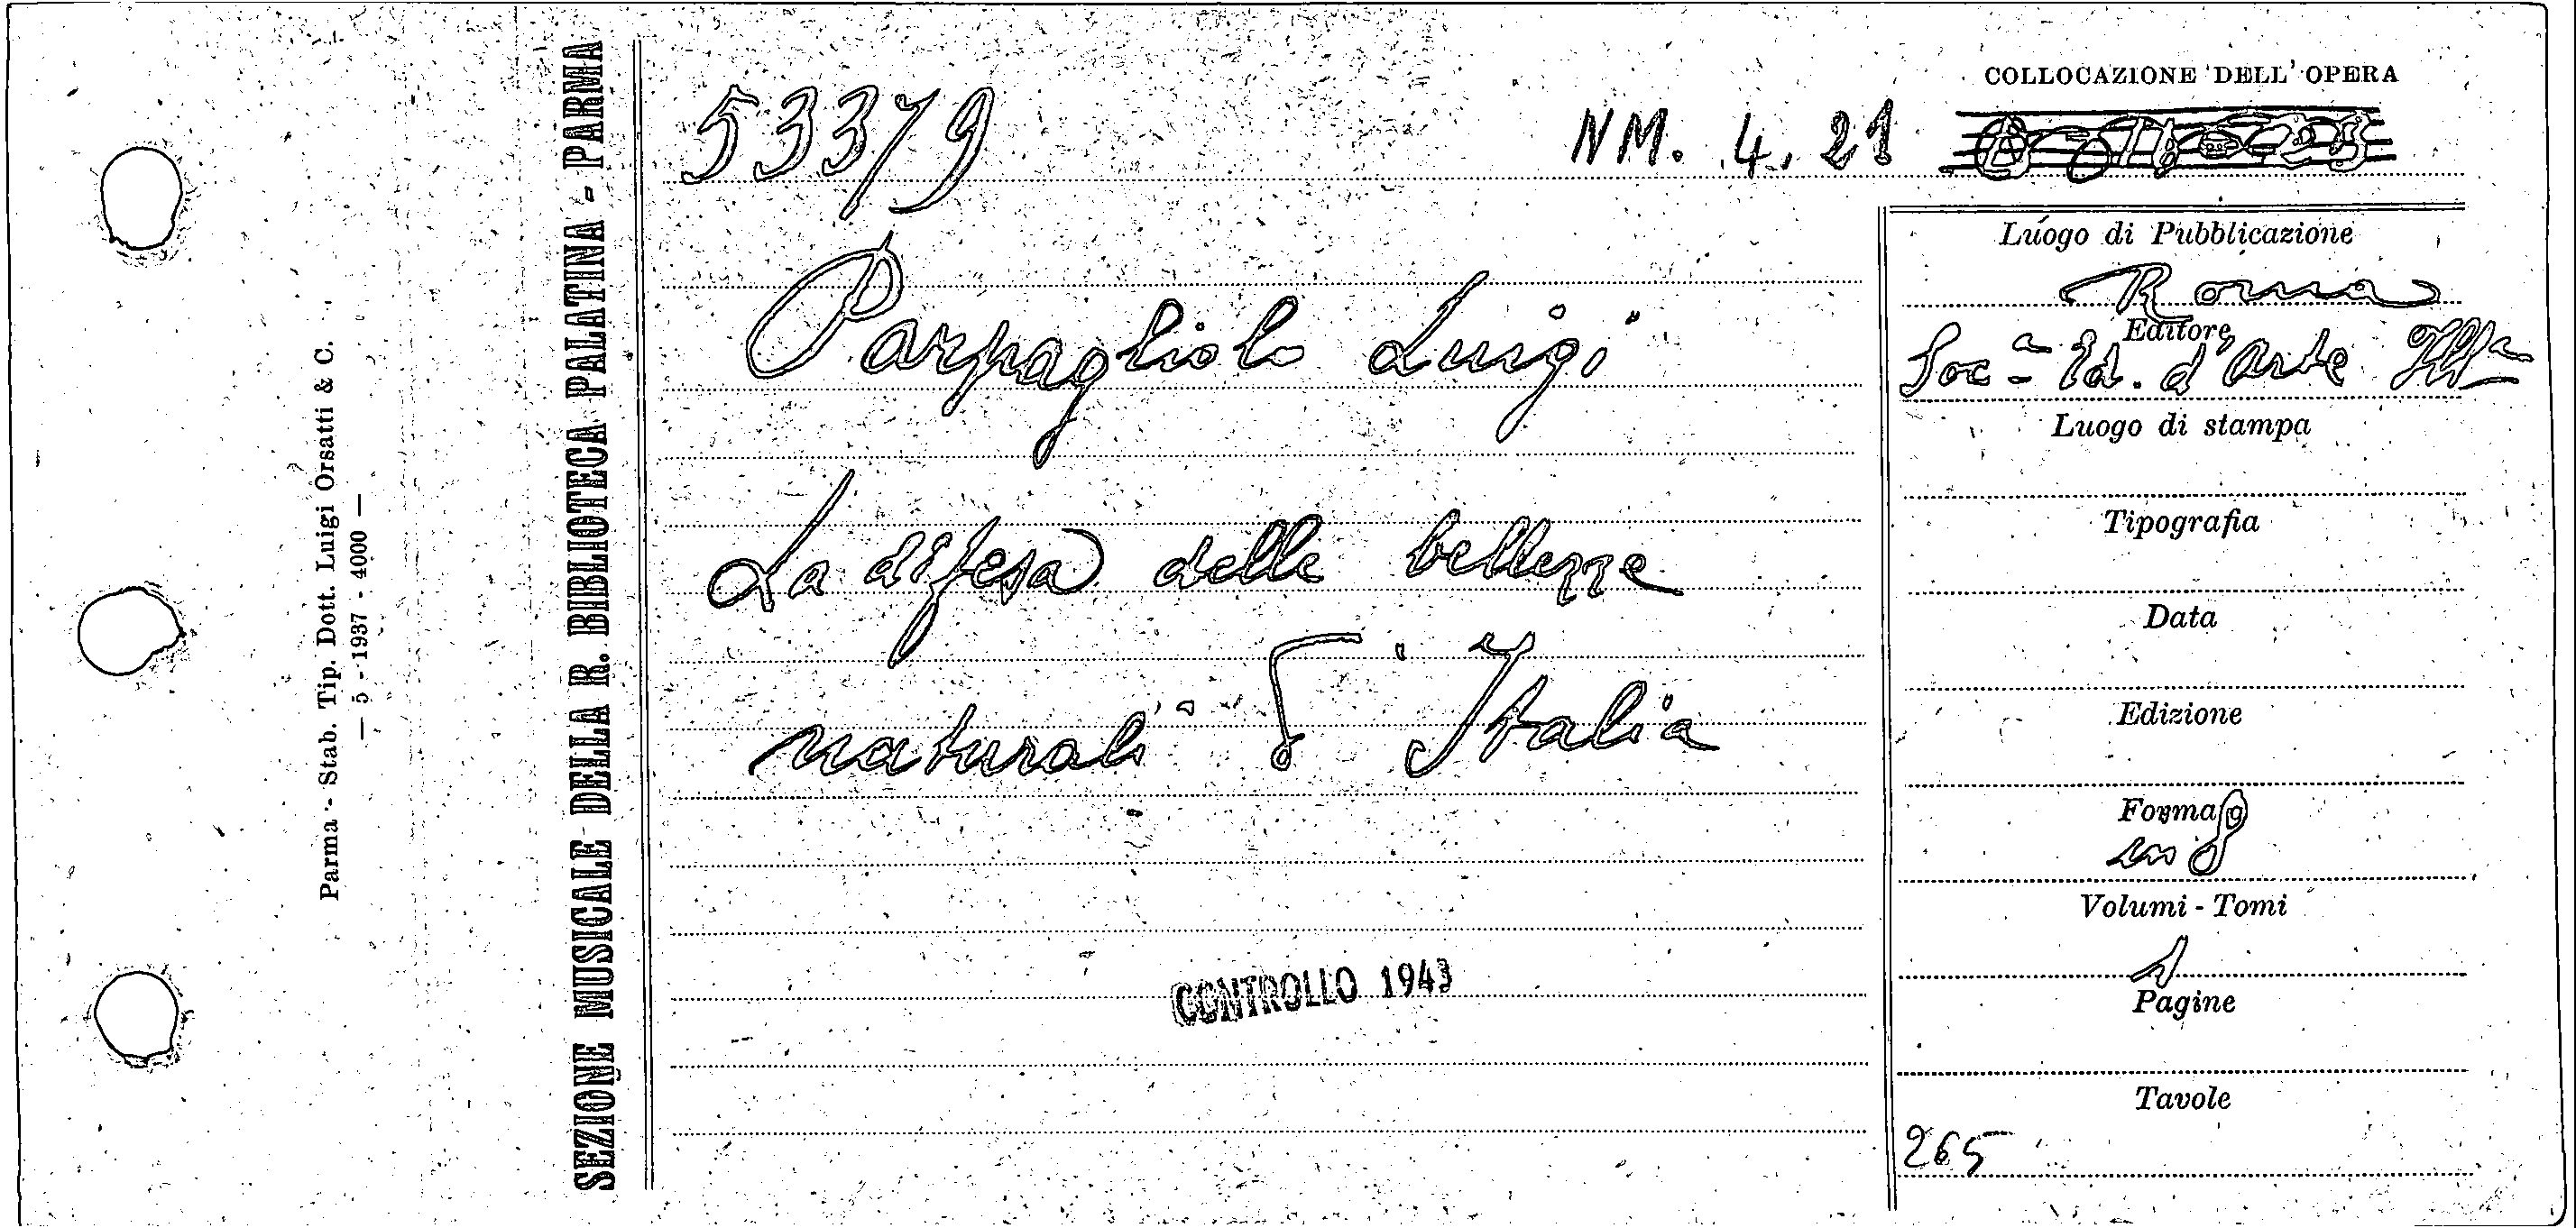 COLLOCAZIONE DELL' OPERA
53379 NM. 4. 21
Parpagliolo Luigi
La difesa delle bellezze
naturali d'Italia
CONTROLLO 1943
Luogo di Pubblicazione
Roma
Editore
Soc.à Ed. d'Arte Ill.a
Luogo di stampa
Tipografia
Data
Edizione
Formato
in 8
Volumi - Tomi
1
Pagine
Tavole
265
SEZIONE MUSICALE DELLA R. BIBLIOTECA PALATINA - PARMA
Parma - Stab. Tip. Dott. Luigi Orsatti & C.
— 5 - 1937 - 4000 —